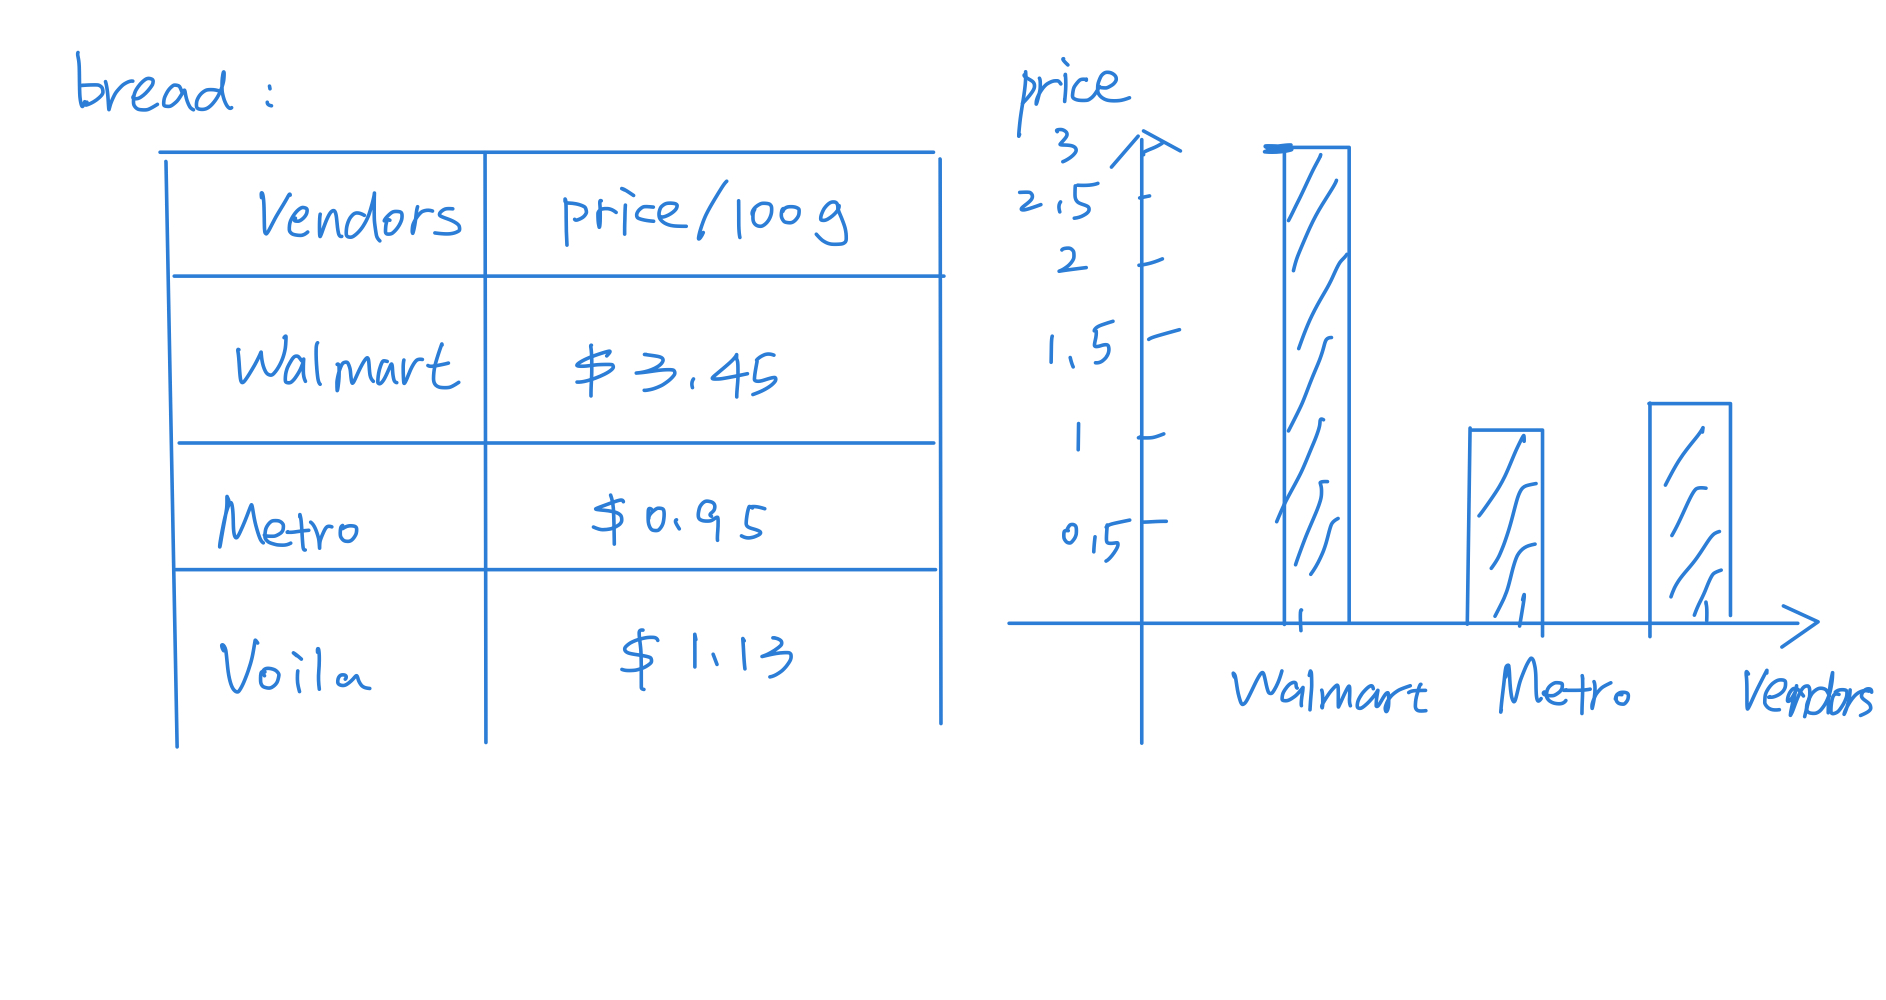 bread :
Vendors price/100g
Walmart $3.45
Metro $0.95
Voila $1.13
price
3
2.5
2
1.5
1
0.5
Walmart Metro Vendors